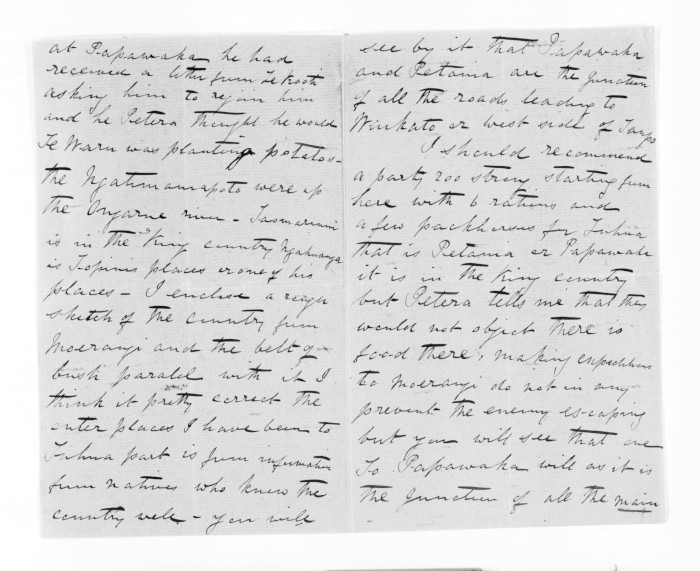 at Papawaka he had
received a letter from Te Kooti
asking him to rejoin him
and he Petera thought he would
Te Waru was planting potatos -
the Ngatimaniapoto were up
the Ongarue river -
is in the King country
is Topinis places or one of his
places - I enclose a rough
sketch of the country from
Moerangi and the belt of
bush paralel with it I
think it pretty correct the
outer places I have been to
Tuhua part is from information
from natives who know the
country well - you will
see by it that Papawaka
and Petania are the junction
of all the roads leading to
Waikato or west side of Taupo
I should recommend
a party 200 strong starting from
here with 6 rations and
a few packhorses for Tuhua
that is Petania or Papawaka
it is in the King country
but Petera tells me that they
would not object there is
food there, making expeditions
to Moerangi do not in any
prevent the enemy escaping
but you will see that one
To Papawaka will as it is
the junction of all the main